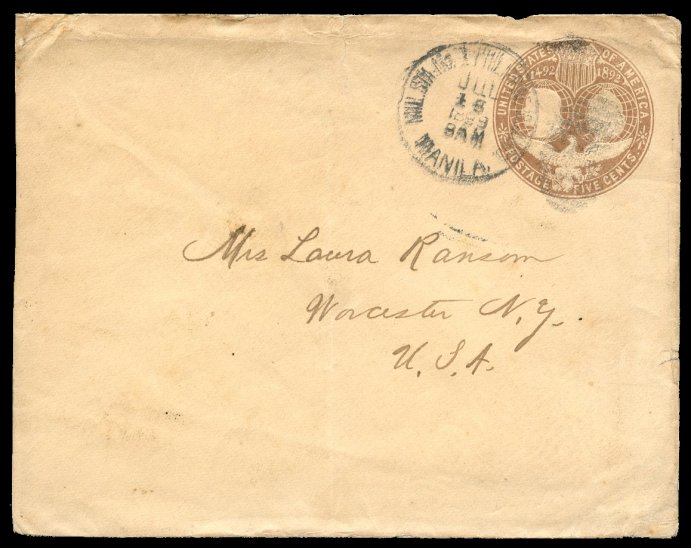 MIL. STA. No. 1 PHIL.
JUL
18
1899
8 AM
MANILA.
UNITED STATES OF AMERICA
1492 1892
POSTAGE FIVE CENTS
Mrs Laura Ransom
Worcester N.Y.
U.S.A.